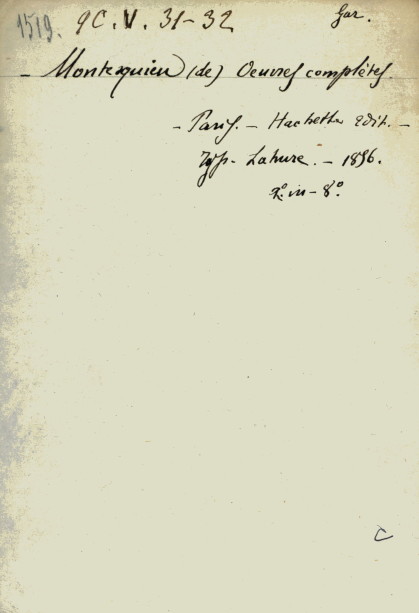 1519. 9C. V. 31-32 Gar.
- Montesquieu (de) Oeuvres complètes.
- Paris. - Hachette édit. -
Typ. Lahure. - 1856.
2° in-8°.
C